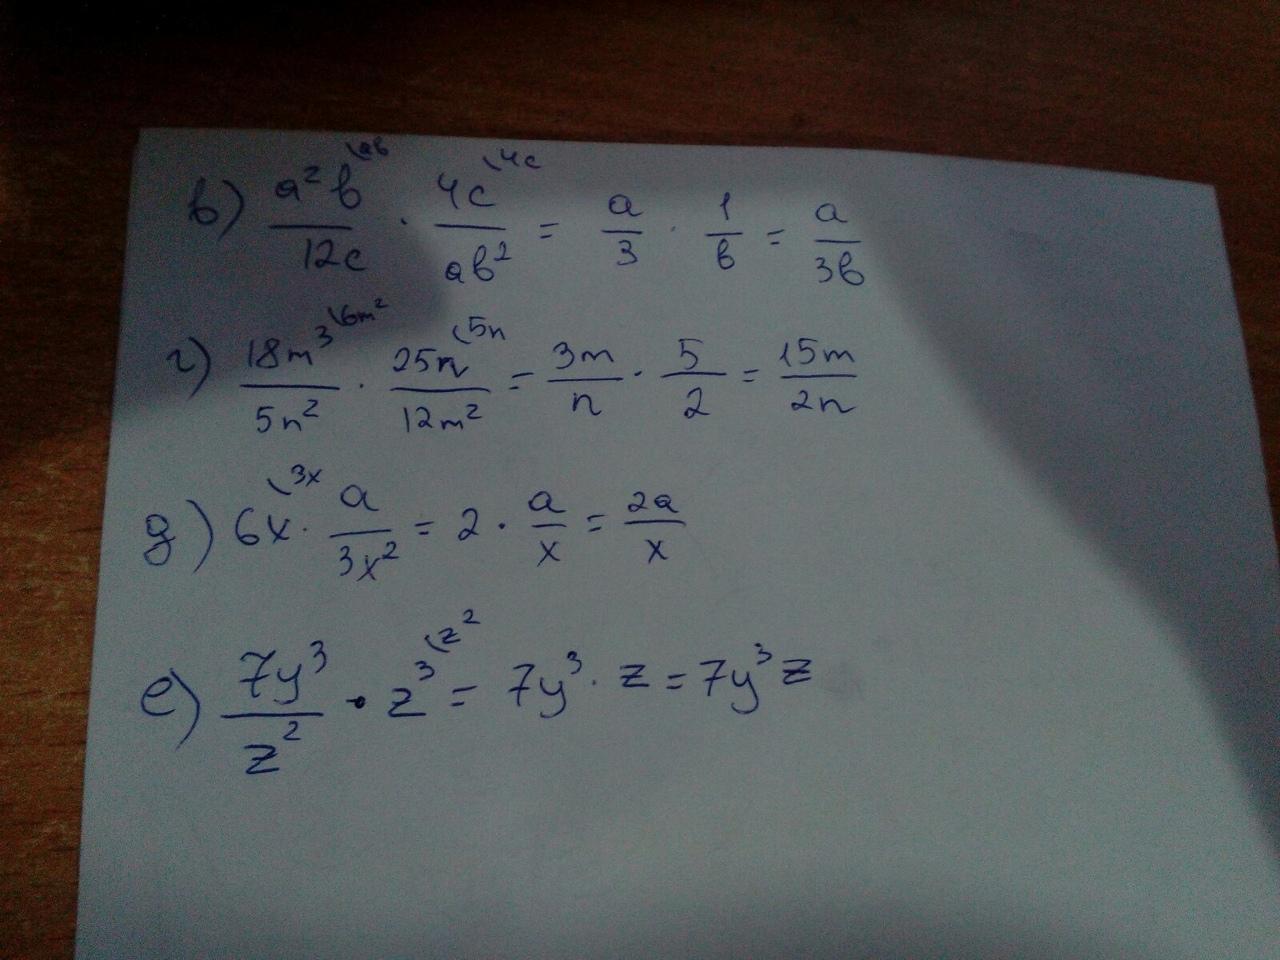 в) a²b\ab / 12c · 4c\4c / ab² = a/3 · 1/b = a/3b
г) 18m³\6m² / 5n² · 25n\5n / 12m² = 3m/n · 5/2 = 15m/2n
g) 6x\3x · a/3x² = 2 · a/x = 2a/x
е) 7y³/z² · z³\z² = 7y³ · z = 7y³z